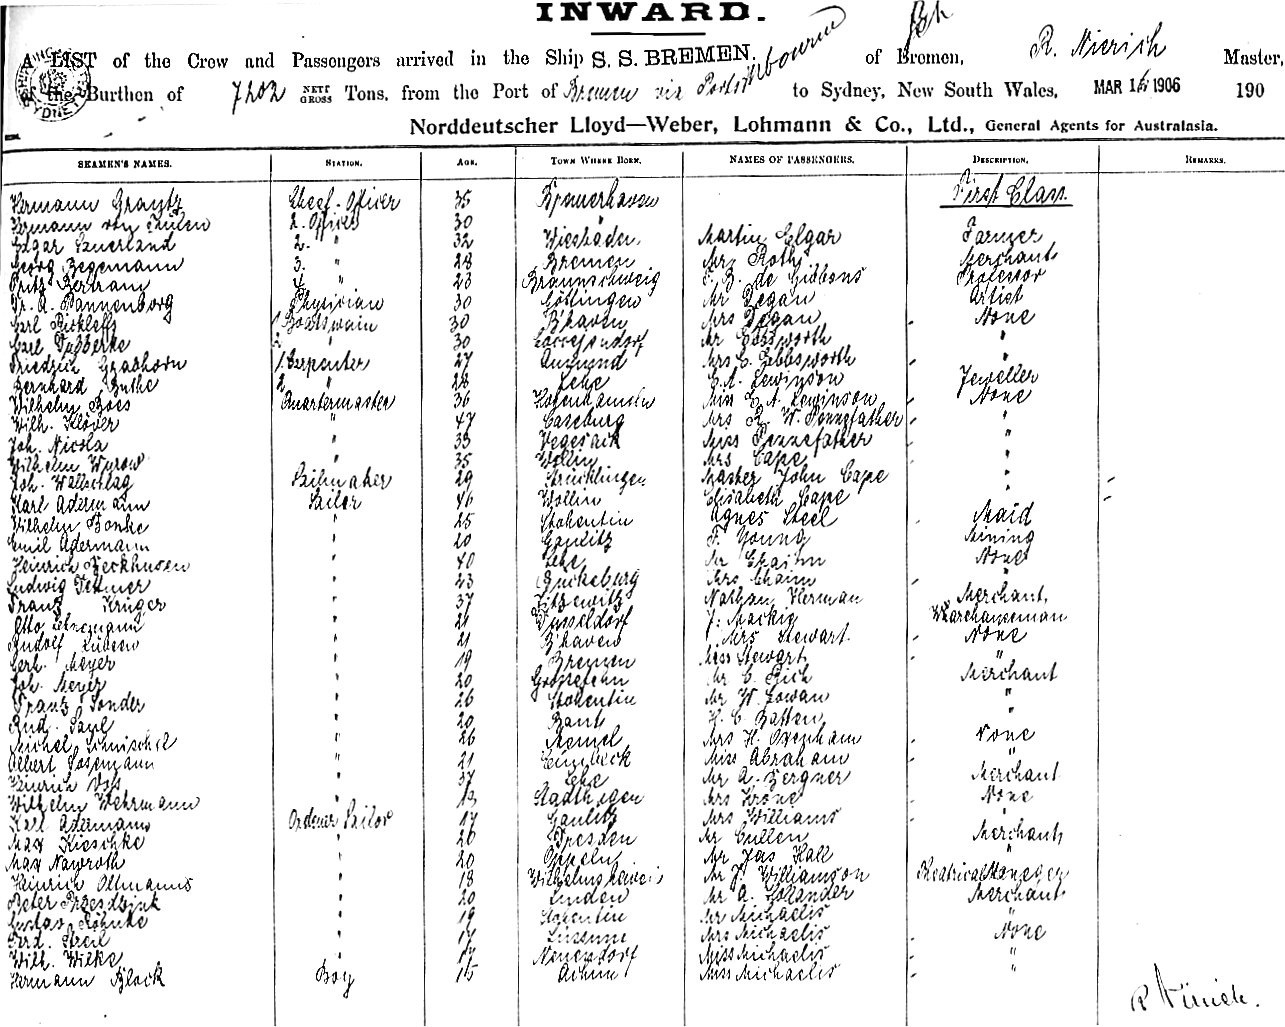 INWARD.
A LIST of the Crew and Passengers arrived in the Ship S. S. BREMEN. of Bremen, R. Nierich Master,
of the Burthen of 7202 NETT GROSS Tons, from the Port of Bremen via to Sydney, New South Wales, MAR 1 1906 190
Norddeutscher Lloyd—Weber, Lohmann & Co., Ltd., General Agents for Australasia.
SEAMEN'S NAMES. STATION. AGE. TOWN WHERE BORN. NAMES OF PASSENGERS. DESCRIPTION. REMARKS.
First Class.
Hermann Grautz Chief-Officer 35 Bremerhaven
Hermann von Thülen 2. Officer 30 "
Edgar Sauerland 2. " 32 Wiesbaden. Martin Elgar Farmer
Georg Zegemann 3. " 28 Bremen Mr. Roth Merchant
Fritz Bertram 4. " 23 Braunschweig de Gibbons Professor
Dr. A. Pannenborg Physician 30 Göttingen Mr Degan Artist
Carl 1 Boatswain 30 B'haven Mrs Degan None
Carl Dubberke 2 " 30 Mr Ebbsworth "
Friedrich Grashorn 1. Carpenter 27 Aumund Mrs C. Ebbsworth "
Bernhard 2 " 28 Lehe A. Lewinson Jeweller
Wilhelm Boes Quartermaster 36 Miss E. A. Lewinson None
Wilh. Klöver " 47 Caseburg Mrs R. W. Pennefather "
Joh. Nicola " 33 Vegesack Miss Pennefather "
Wilhelm " 35 Wollin Mrs Cape "
Joh. Wallschlag Sailmaker 29 Strücklingen Master John Cape "
Karl Adermann Sailor 46 Wollin Elisabeth Cape "
Wilhelm Bonke " 25 Stohentin Agnes Steel Maid
Emil Adermann " 20 Gaulitz F. Young Mining
Heinrich Feckhusen " 40 Lehe Mr Chaim None
Ludwig Tettmer " 23 Buckeburg Mrs Chaim "
Franz Krüger " 37 Vitzewitz Nathan Herman Merchant.
Otto " 21 Düsseldorf J. Mackie Warehauseman
Rudolf Lübsen " 21 B'haven Mrs Stewart. None
Gerh. Meyer " 19 Bremen Miss Stewart "
Joh. Meyer " 20 Mr C. Rich Merchant
Franz Sonder " 26 Stohentin Mr W. Cowan "
Rud. Paul " 20 Bant H. C. Batten "
Michel " 26 Memel Mrs H. Oxenham None
Albert Posemann " 21 Einbeck Miss Abraham "
Heinrich Vols " 37 Lehe Mr A. Zergner Merchant
Wilhelm Wehrmann " 19 Stadthagen Mrs Krone None
Karl Adermann Ordener Sailor 17 Gaulitz Mrs Williams "
Max Kieschke " 26 Dresden Mr Cullen Merchant
Max Nawroth " 20 Oppeln Mr Jas Hall "
Heinrich Oltmanns " 18 Wilhelmshaven Mr J. Williamson Theatrical Maneger
Peter " 20 Linden Mr A. Hollander Merchant
Gustav Röhnke " 19 Stohentin Mr Michaelis "
Ferd. Streil " 17 Mrs Michaelis None
Wilh. Wilke " 17 Neuendorf Miss Michaelis "
Hermann Block Boy 15 Achim Miss Michaelis "
R Nierich.